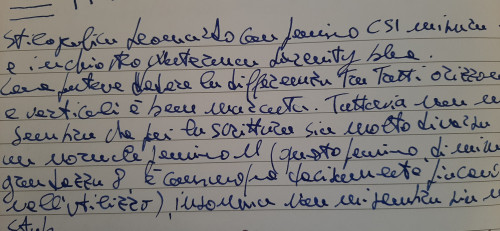 Stilografica Leonardo con pennino CSI misura
e inchiostro Waterman Serenity blue.
Come potete vedere la differenza tra tratti orizzon
e verticali è ben marcata. Tuttavia non m
sembra che per la scrittura sia molto diversa
un normale pennino M (questo pennino di mi
grandezza 8, è comunque decisamente
nell'utilizzo), insomma non mi sembra sia u
stub